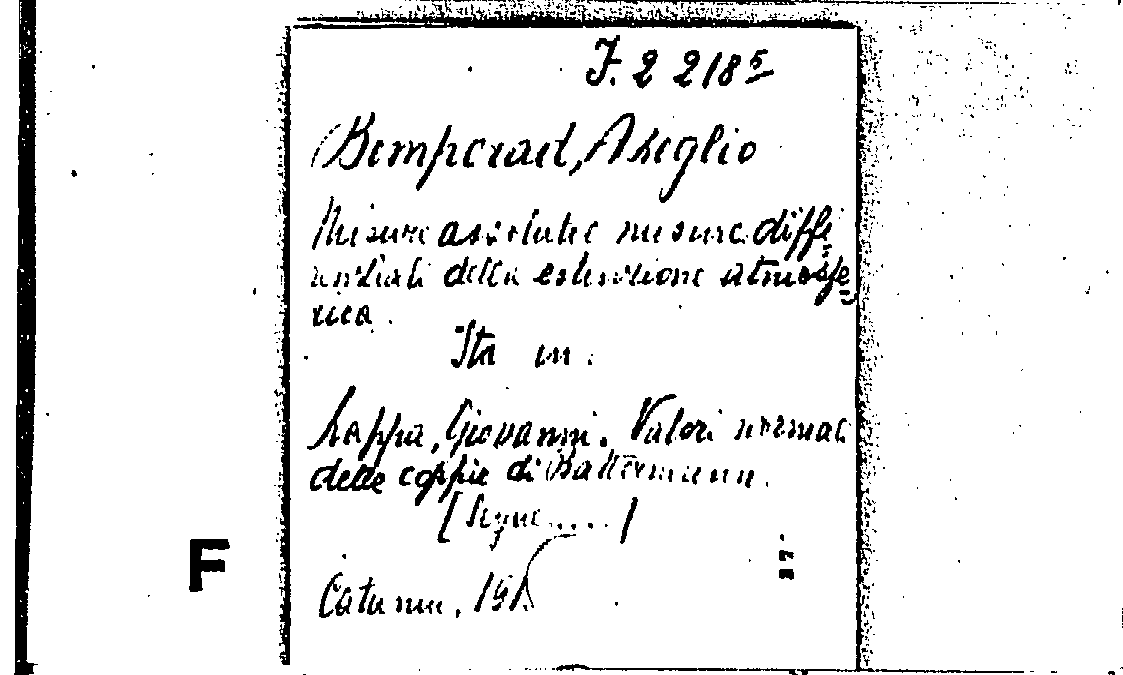 F. 2 218⁵
Bemporad, Azeglio
Misure assolute e misure diffe
renziali della estinzione atmosfe
rica.
Sta in:
Zappa, Giovanni. Valori normali
delle coppie di Battermann.
[Segue....]
Catania, 191
F